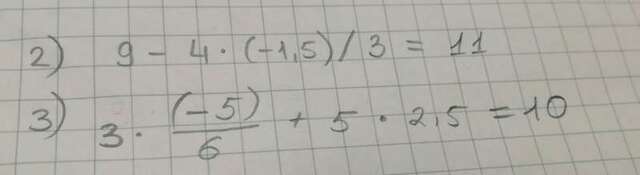 2) 9 - 4 · (-1,5) / 3 = 11
3) 3 · (-5)/6 + 5 · 2,5 = 10